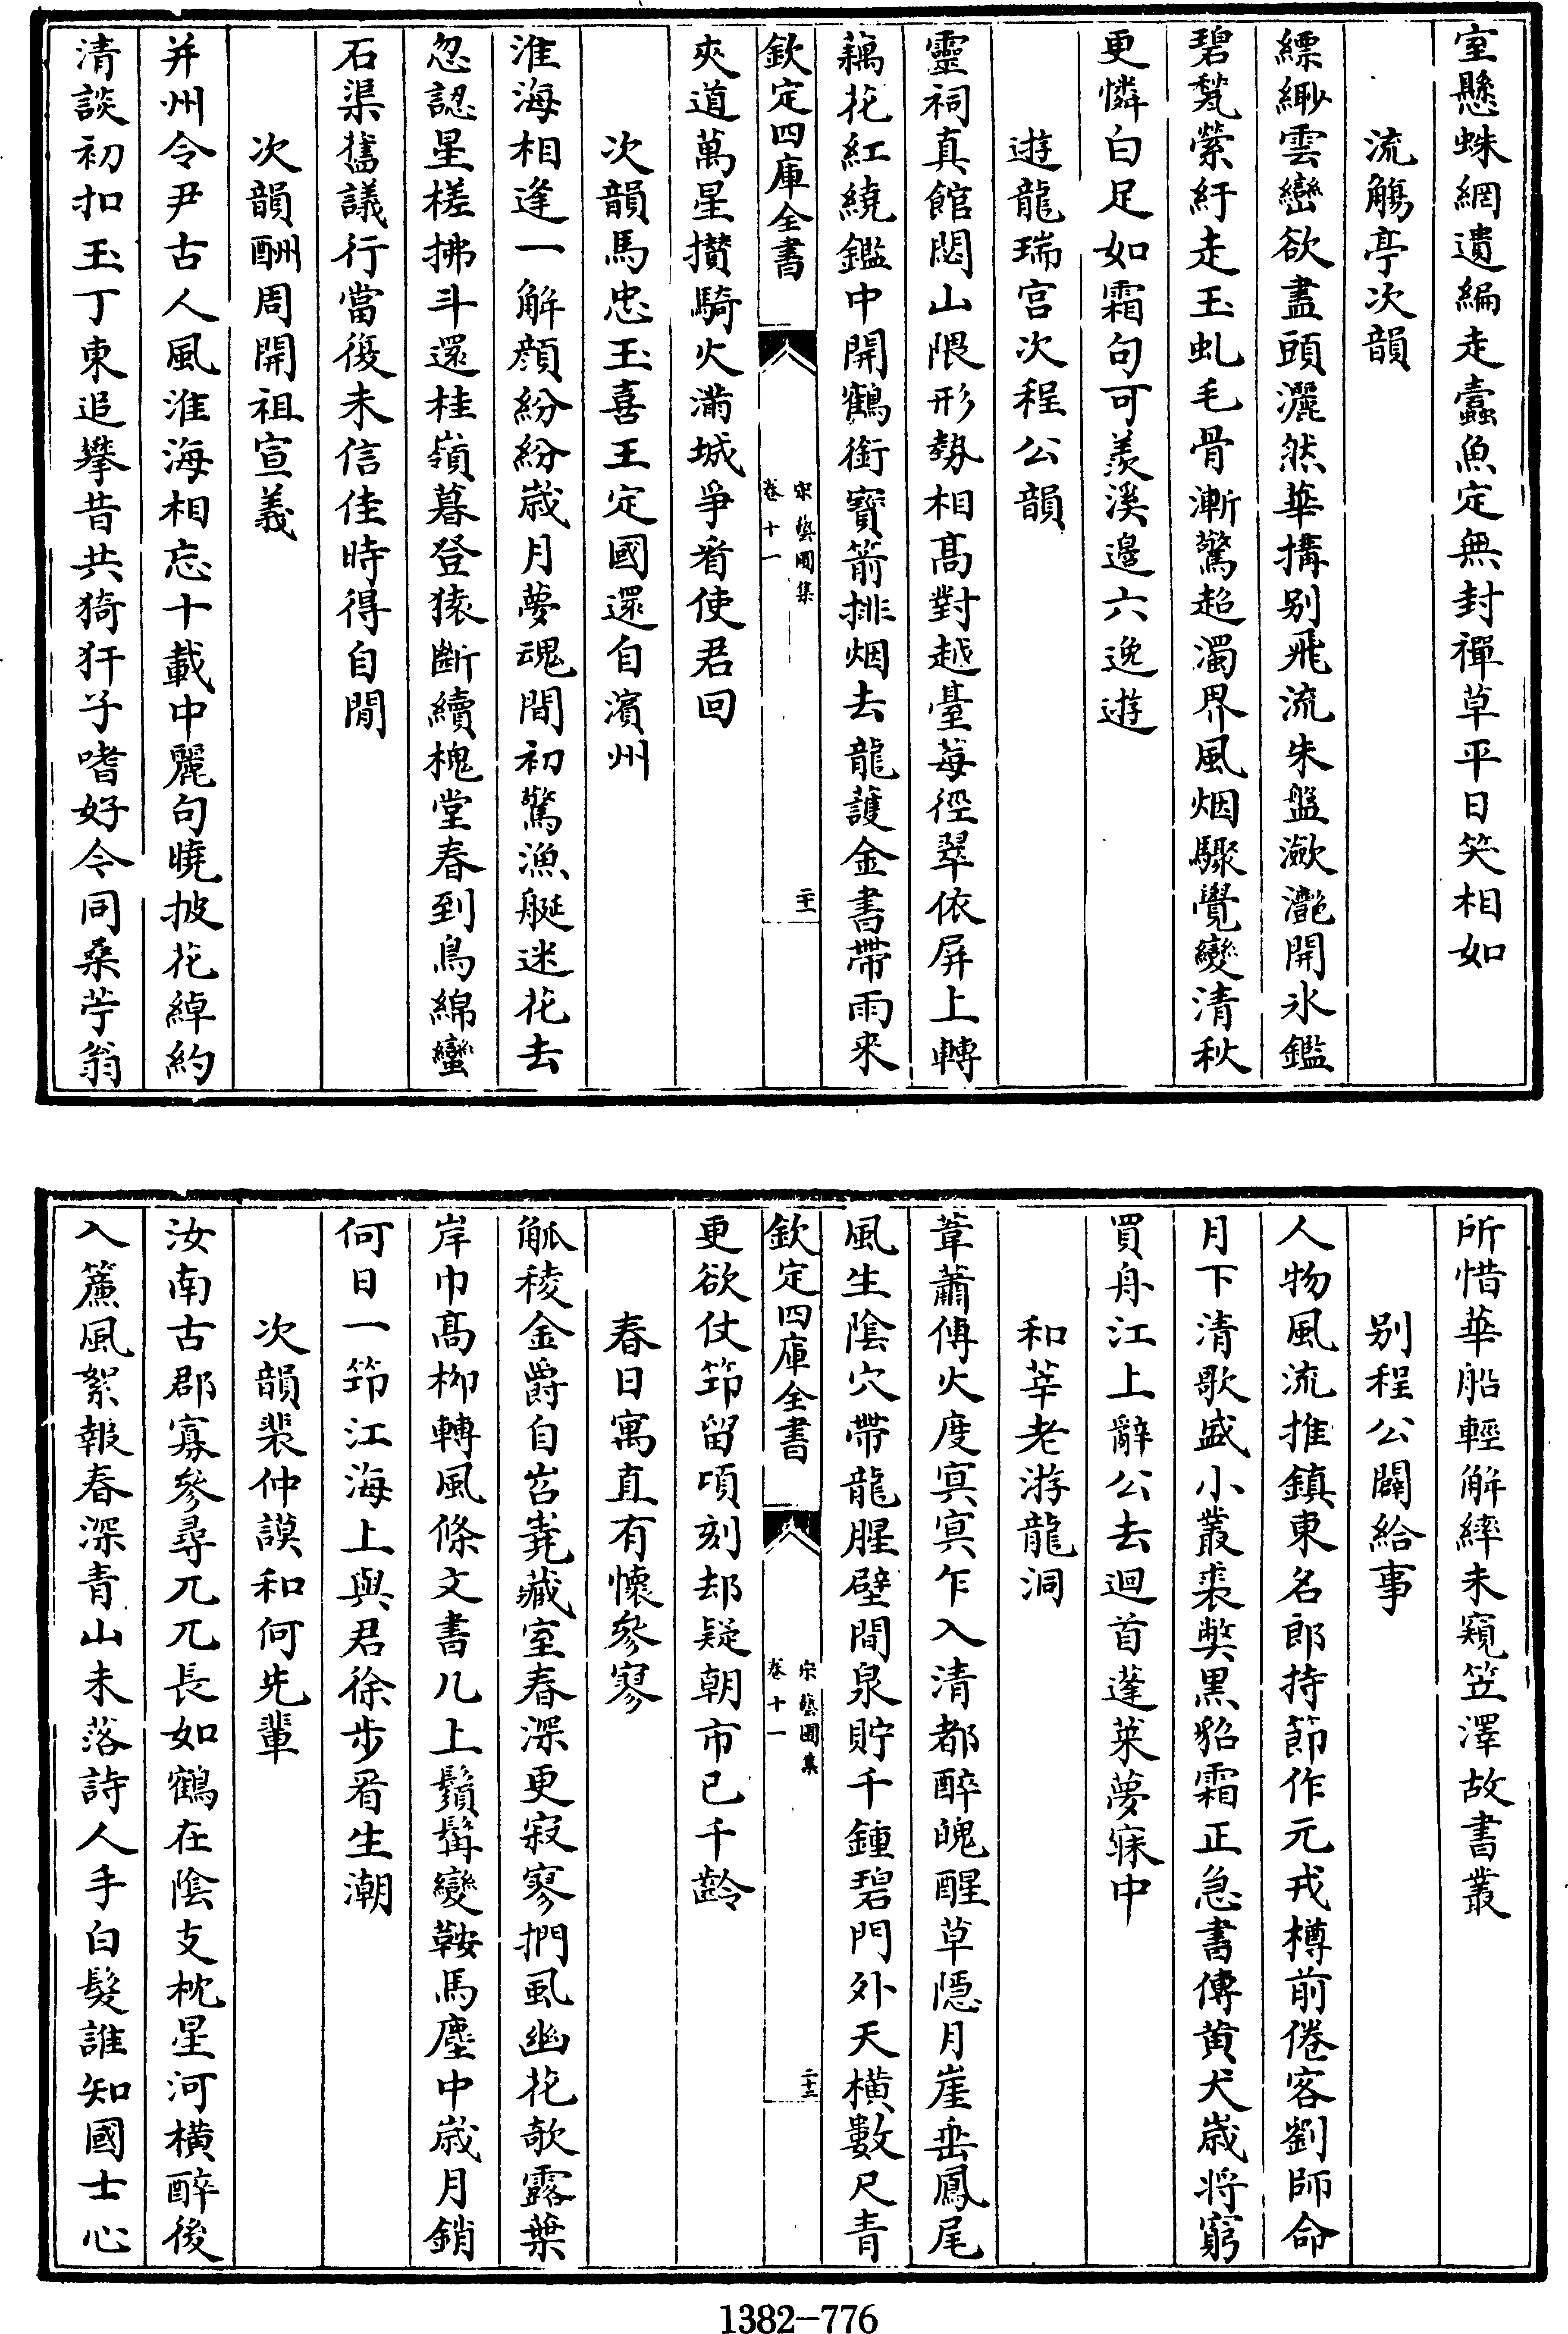 室懸蛛網遺編走蠹魚定無封禪草平日笑相如
流觴亭次韻
縹緲雲巒欲盡頭灑然華搆别飛流朱盤瀲灔開氷鑑
碧甃縈紆走玉虬毛骨漸驚超濁界風烟驟覺變清秋
更憐白足如霜句可羨溪邊六逸遊
遊龍瑞宫次程公韻
靈祠真館閟山隈形勢相髙對越臺莓徑翠依屏上轉
藕花紅繞鑑中開鶴銜寳箭排烟去龍護金書帶雨來
欽定四庫全書
宋藝圃集
卷十一
二十一
夾道萬星攅騎火滿城爭看使君回
次韻馬忠玉喜王定國還自濵州
淮海相逢一解顔紛紛嵗月夢魂間初驚漁艇迷花去
忽認星槎拂斗還桂嶺暮登猿斷續槐堂春到鳥綿蠻
石渠舊議行當復未信佳時得自閒
次韻酬周開祖宣義
并州令尹古人風淮海相忘十載中麗句曉披花綽約
清談初扣玉丁東追攀昔共猗玕子嗜好今同桑苧翁
所惜華船輕解繂未窺笠澤故書叢
别程公闢給事
人物風流推鎮東名郎持節作元戎樽前倦客劉師命
月下清歌盛小叢裘獘黒貂霜正急書傳黄犬嵗将窮
買舟江上辭公去迴首蓬萊夢寐中
和莘老游龍洞
葦蕭傅火度㝠㝠乍入清都醉魄醒草隠月崖垂鳳尾
風生陰穴帶龍腥壁間泉貯千鍾碧門外天橫數尺青
欽定四庫全書
宋藝圃集
卷十一
二十二
更欲仗笻留項刻却疑朝市已千齡
春日寓直有懷參寥
觚稜金爵自岧嶤藏室春深更寂寥捫虱幽花欹露葉
岸巾髙柳轉風條文書几上鬚髯變鞍馬塵中嵗月銷
何日一笻江海上與君徐步看生潮
次韻裴仲謨和何先輩
汝南古郡寡參尋兀兀長如鶴在陰支枕星河橫醉後
入簾風絮報春深青山未落詩人手白髮誰知國士心
1382-776